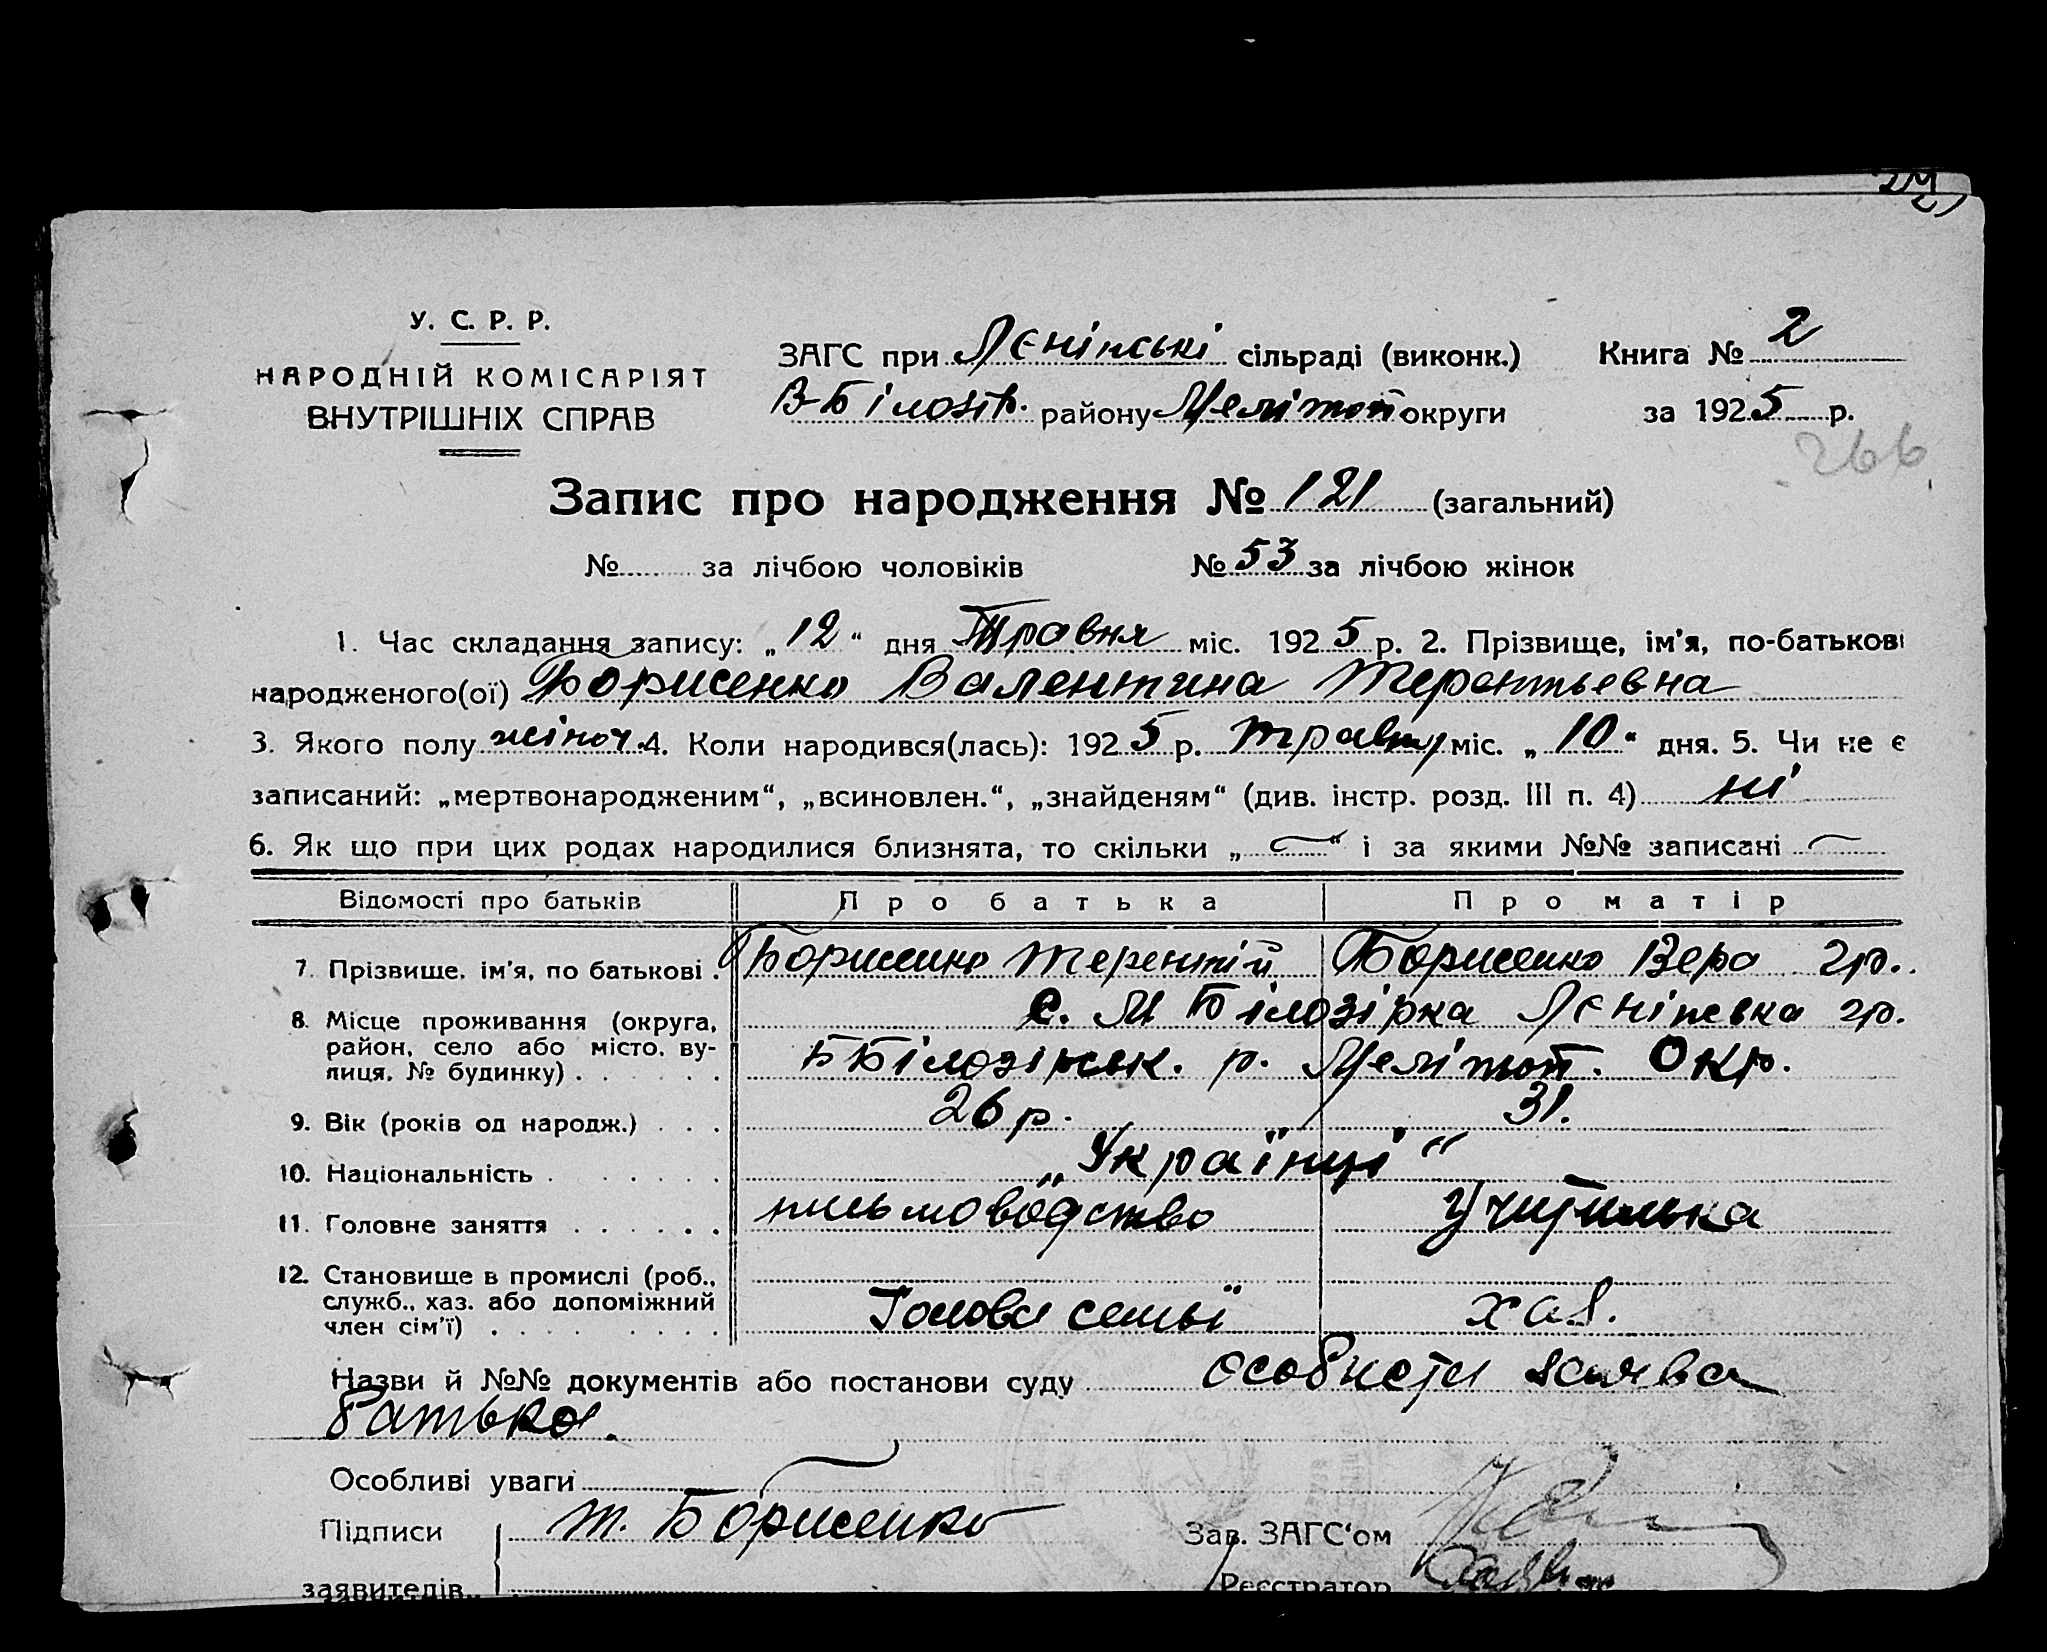 У. С. Р. Р.
НАРОДНІЙ КОМІСАРІЯТ
ВНУТРІШНІХ СПРАВ
ЗАГС при Лєнінські сільраді (виконк.)
В-Білозір. району Мелітоп округи
Книга № 2
за 1925 р.
266
Запис про народження № 121 (загальний)
№ за лічбою чоловіків № 53 за лічбою жінок
1. Час складання запису: „12“ дня Травня міс. 1925 р. 2. Прізвище, ім'я, по-батькові
народженого(ої) Борисенко Валентина Терентьевна
3. Якого полу жіноч. 4. Коли народився(лась): 1925 р. травня міс. „10“ дня. 5. Чи не є
записаний: „мертвонародженим“, „всиновлен.“, „знайденям“ (див. інстр. розд. III п. 4) ні
6. Як що при цих родах народилися близнята, то скільки „ “ і за якими №№ записані
Відомості про батьків Про батька Про матір
7. Прізвище, ім'я, по батькові . Борисенко Терентій Борисенко Вера гр.
8. Місце проживання (округа, с. М Білозірка Лєнінська гр.
район, село або місто, ву-
лиця, № будинку) . . . . . Б Білозірськ. р. Мелітоп. Окр.
9. Вік (років од народж.) . . . 26 р. 31.
10. Національність . . . . . . „Українці“
11. Головне заняття . . . . . . письмоводство Учитилька
12. Становище в промислі (роб.,
служб., хаз. або допоміжний
член сім'ї) . . . . . . . . Голова семьї хаз.
Назви й №№ документів або постанови суду особисти заява
батька.
Особливі уваги
Підписи Т. Борисенко Зав. ЗАГС'ом
заявителів Реєстратор